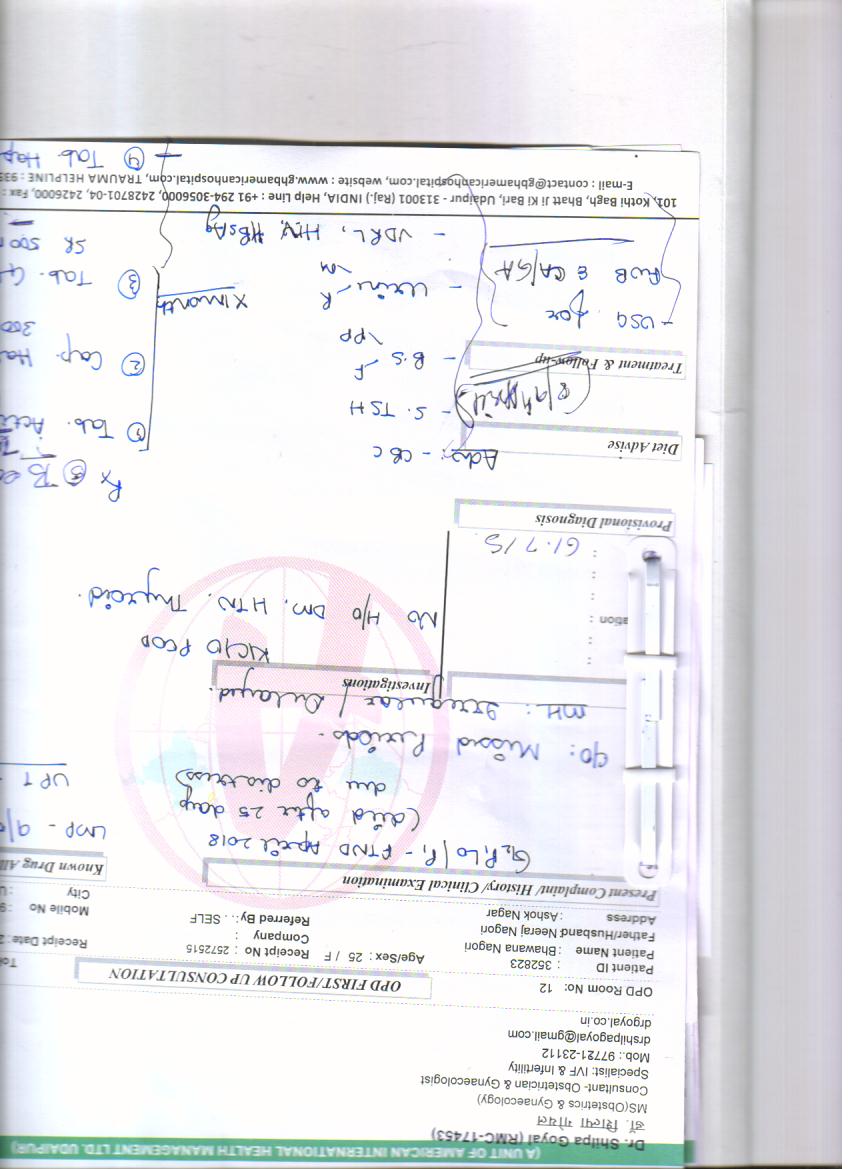 (A UNIT OF AMERICAN INTERNATIONAL HEALTH MANAGEMENT LTD. UDAIPUR)
Dr. Shilpa Goyal (RMC-17453)
डॉ. शिल्पा गोयल
MS(Obstetrics & Gynaecology)
Consultant- Obstetrician & Gynaecologist
Specialist: IVF & Infertility
Mob.: 97721-23112
drshilpagoyal@gmail.com
drgoyal.co.in
OPD Room No: 12
OPD FIRST/FOLLOW UP CONSULTATION
Patient ID : 352823 Age/Sex : 25 / F Receipt No : 2572515 Receipt Date :
Patient Name : Bhawana Nagori Company :
Father/Husband: Neeraj Nagori Referred By: . . SELF Mobile No : 9
Address : Ashok Nagar City
Present Complaint/ History/ Clinical Examination
Known Drug All
G2 P1 L0 / P1 - FTND April 2018
(died after 25 day
due to distress)
LMP - 9/
UPT
c/o: Missed Periods.
MH: Irregular / Delayed.
Investigations
K/C/O PCOD
No H/o DM, HTN, Thyroid.
ation :
: 61.7/5
Provisional Diagnosis
Rx
Adv:- CBC
Diet Advise
- S. TSH
① Tab. Acti
- B.S. F
PP
② Cap. Ha
300
Treatment & Follow-up
- USG for
FWB & CA/GA
- Urine R
M
x 1 month
③ Tab. G
SR 500
- VDRL, HIV, HBsAg
101, Kothi Bagh, Bhatt Ji Ki Bari, Udaipur - 313001 (Raj.) INDIA, Help Line : +91 294-3056000, 2428701-04, 2426000, Fax :
E-mail : contact@gbhamericanhospital.com, website : www.gbhamericanhospital.com, TRAUMA HELPLINE : 939
④ Tab. Hap